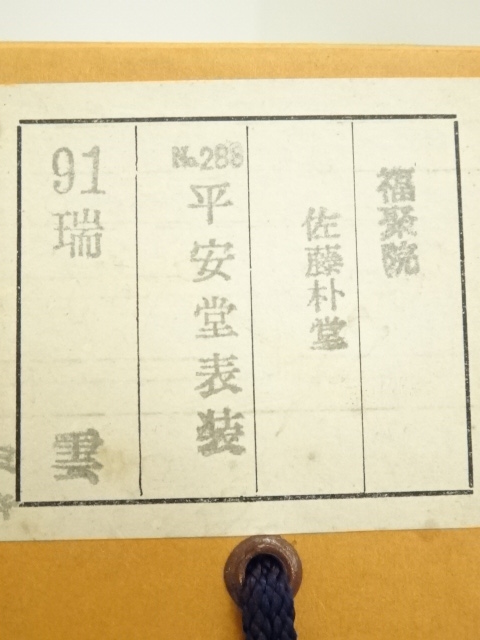 福聚院
佐藤朴堂
No.288
平安堂表装
91
瑞雲